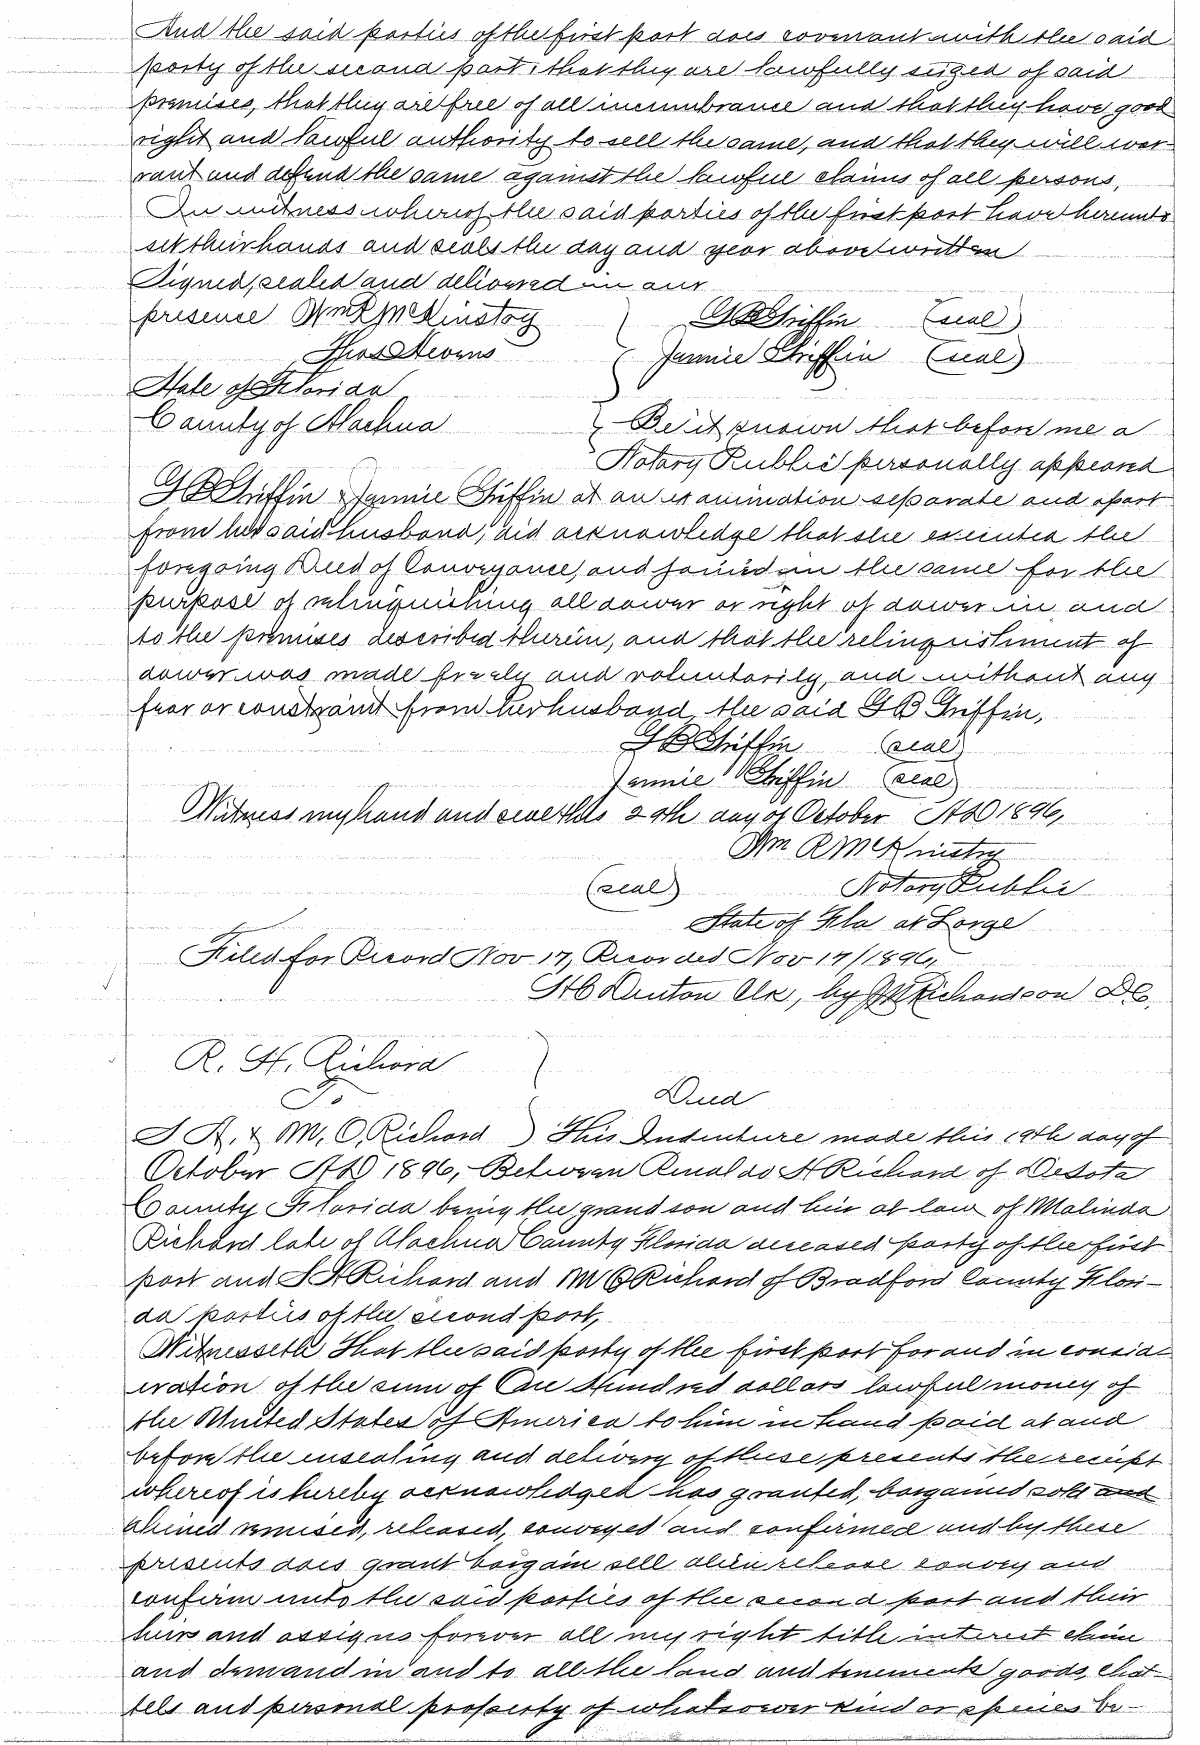 And the said parties of the first part does covenant with the said
party of the second part, that they are lawfully seized of said
premises, that they are free of all incumbrance and that they have good
right and lawful authority to sell the same, and that they will war-
rant and defend the same against the lawful claims of all persons,
In witness whereof the said parties of the first part have hereunto
set their hands and seals the day and year above written
Signed, sealed and delivered in our
presence Wm R McKinstry } G B Griffin (seal)
Thos Stevens } Jannie Griffin (seal)
State of Florida
County of Alachua } Be it known that before me a
Notary Public personally appeared
G B Griffin & Jannie Griffin at an examination separate and apart
from her said husband, did acknowledge that she executed the
foregoing Deed of Conveyance, and joined in the same for the
purpose of relinquishing all dower or right of dower in and
to the premises described therein, and that the relinquishment of
dower was made freely and voluntarily, and without any
fear or constraint from her husband, the said G B Griffin,
G B Griffin (seal)
Jannie Griffin (seal)
Witness my hand and seal this 29th day of October AD 1896,
Wm R McKinstry
(seal) Notary Public
State of Fla at Large
Filed for Record Nov 17, Recorded Nov 17/1896,
H C Denton Clk, by J M Richardson DC,
R. H. Richard
To } Deed
S A. & M. O. Richard } This Indenture made this 19th day of
October AD 1896, Between Renaldo H Richard of DeSota
County Florida being the grandson and heir at law of Malinda
Richard late of Alachua County Florida deceased party of the first
part and S A Richard and M O Richard of Bradford County Flori-
da parties of the second part,
Witnesseth That the said party of the first part for and in consid-
eration of the sum of One Hundred dollars lawful money of
the United States of America to him in hand paid at and
before the ensealing and delivery of these presents the receipt
whereof is hereby acknowledged has granted, bargained sold and
aliened remised, released, conveyed and confirmed and by these
presents does grant bargain sell alien release convey and
confirm unto the said parties of the second part and their
heirs and assigns forever all my right title interest claim
and demand in and to all the land and tenements goods, chat-
tels and personal property of whatsoever kind or species be-